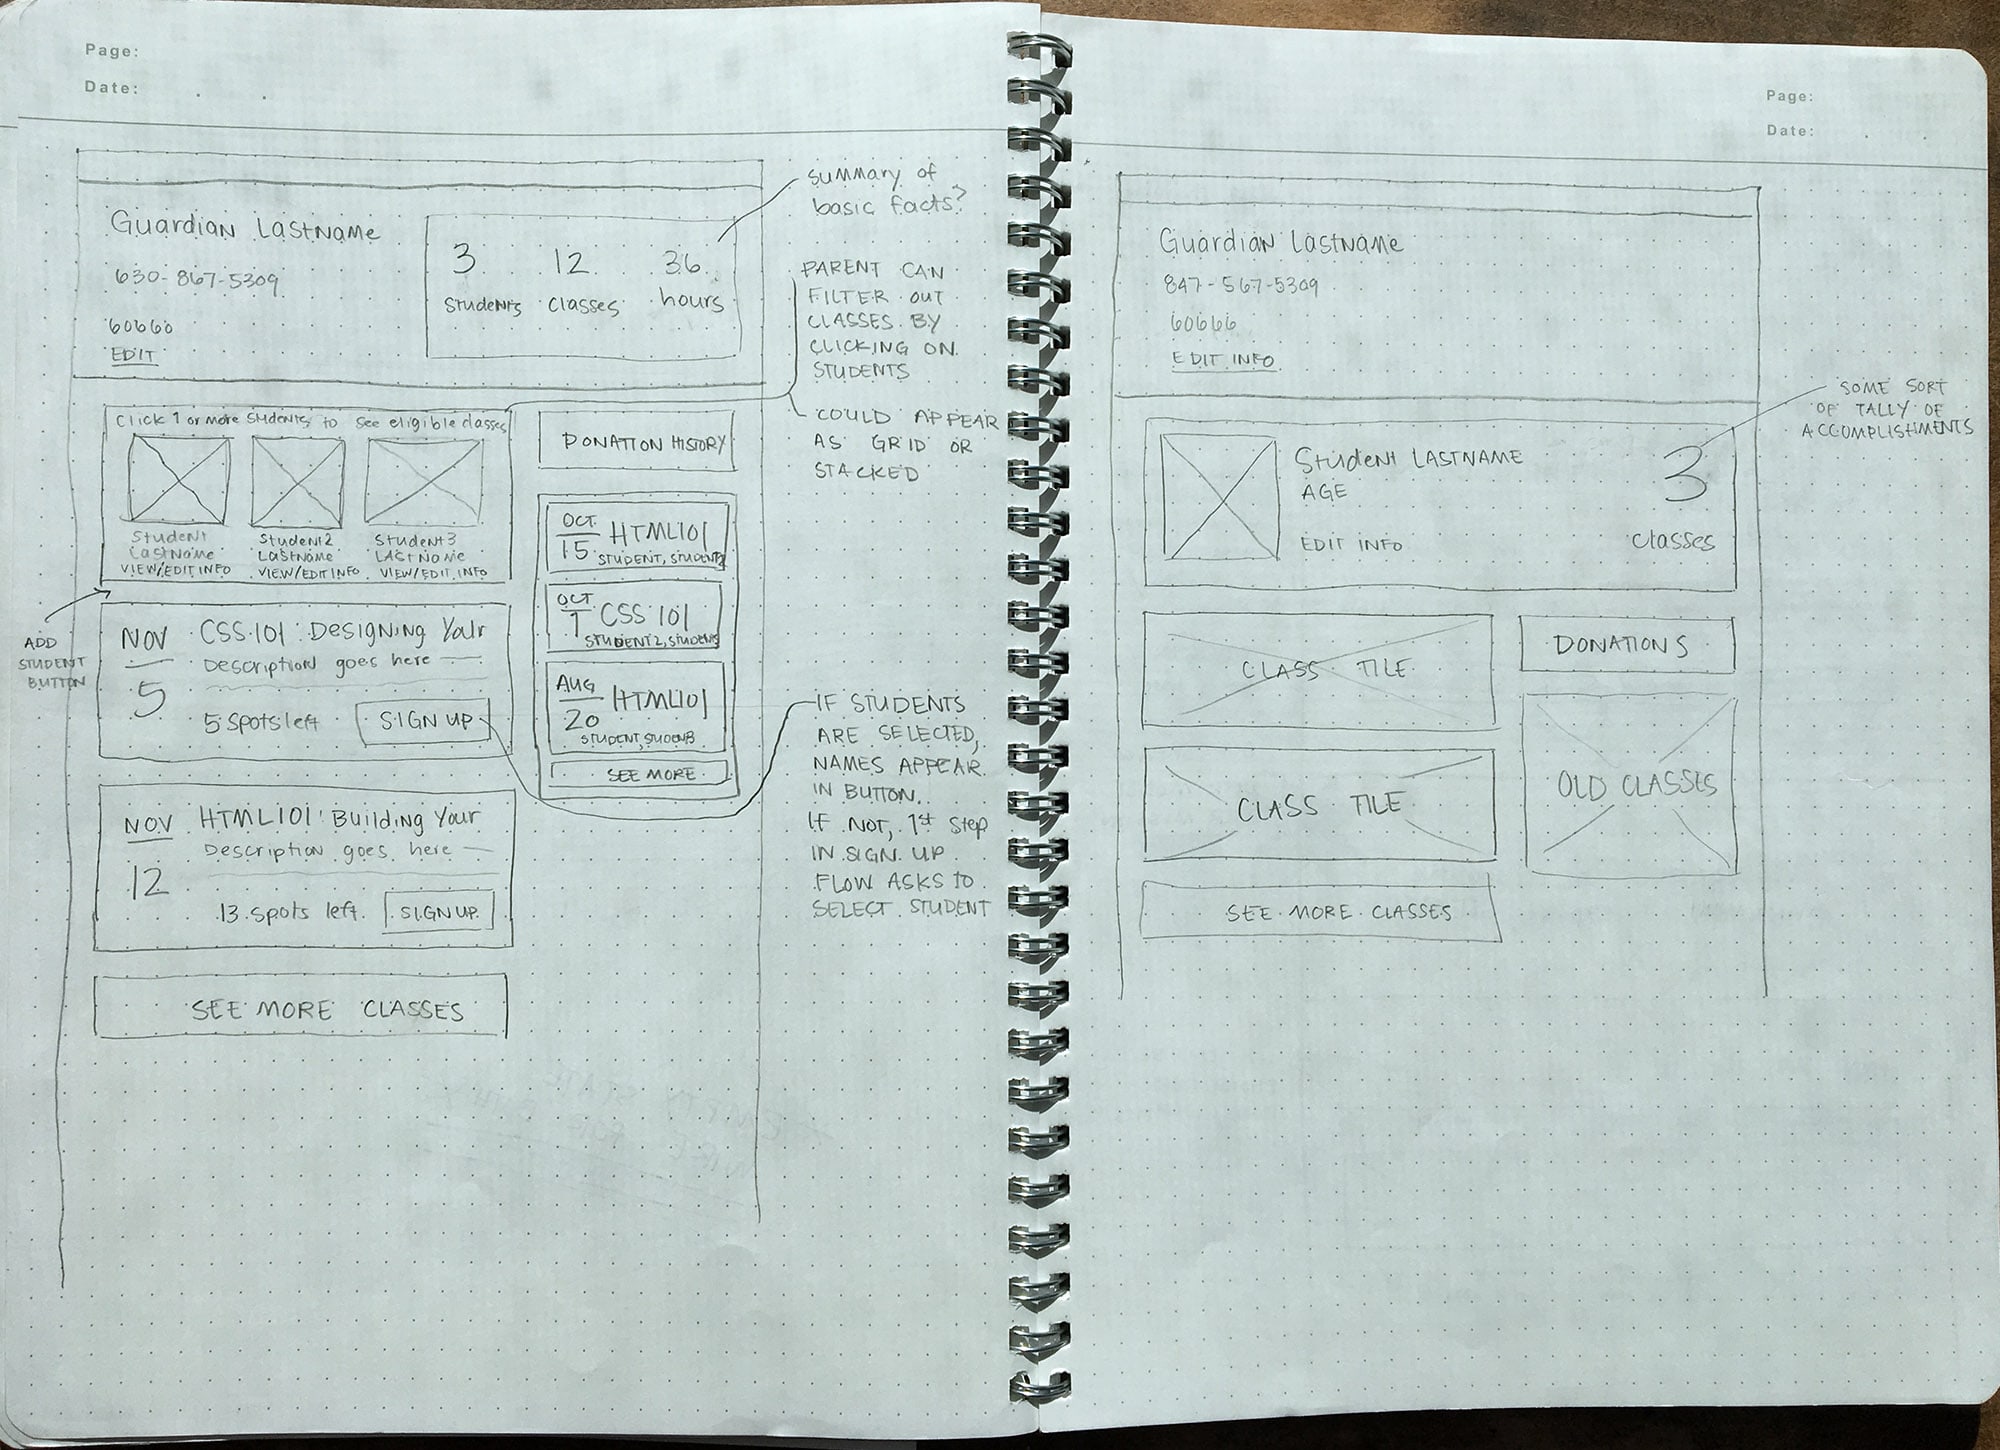 Page:
Date:
Guardian Lastname
630-867-5309
60660
EDIT
3 12 36
Students classes hours
summary of
basic facts?
PARENT CAN
FILTER OUT
CLASSES BY
CLICKING ON
STUDENTS
COULD APPEAR
AS GRID OR
STACKED
Click 1 or more students to see eligible classes
Student
Lastname
VIEW/EDIT INFO
Student2
Lastname
VIEW/EDIT INFO
Student3
LASTName
VIEW/EDIT INFO
ADD
STUDENT
BUTTON
DONATION HISTORY
OCT
15
HTML101
STUDENT, STUDENT2
OCT
1
CSS 101
STUDENT2, STUDENT3
AUG
20
HTML101
STUDENT, STUDEN3
SEE MORE
NOV
5
CSS 101: Designing Your
Description goes here
5 spots left
SIGN UP
NOV
12
HTML101: Building Your
Description goes here
13 spots left
SIGN UP
SEE MORE CLASSES
IF STUDENTS
ARE SELECTED,
NAMES APPEAR
IN BUTTON.
IF NOT, 1st Step
IN SIGN UP
FLOW ASKS to
SELECT STUDENT
Page:
Date:
Guardian Lastname
847-567-5309
60666
EDIT INFO
SOME SORT
OF TALLY OF
ACCOMPLISHMENTS
Student LASTNAME
AGE
EDIT INFO
3
classes
CLASS TILE
CLASS TILE
SEE MORE CLASSES
DONATIONS
OLD CLASSES